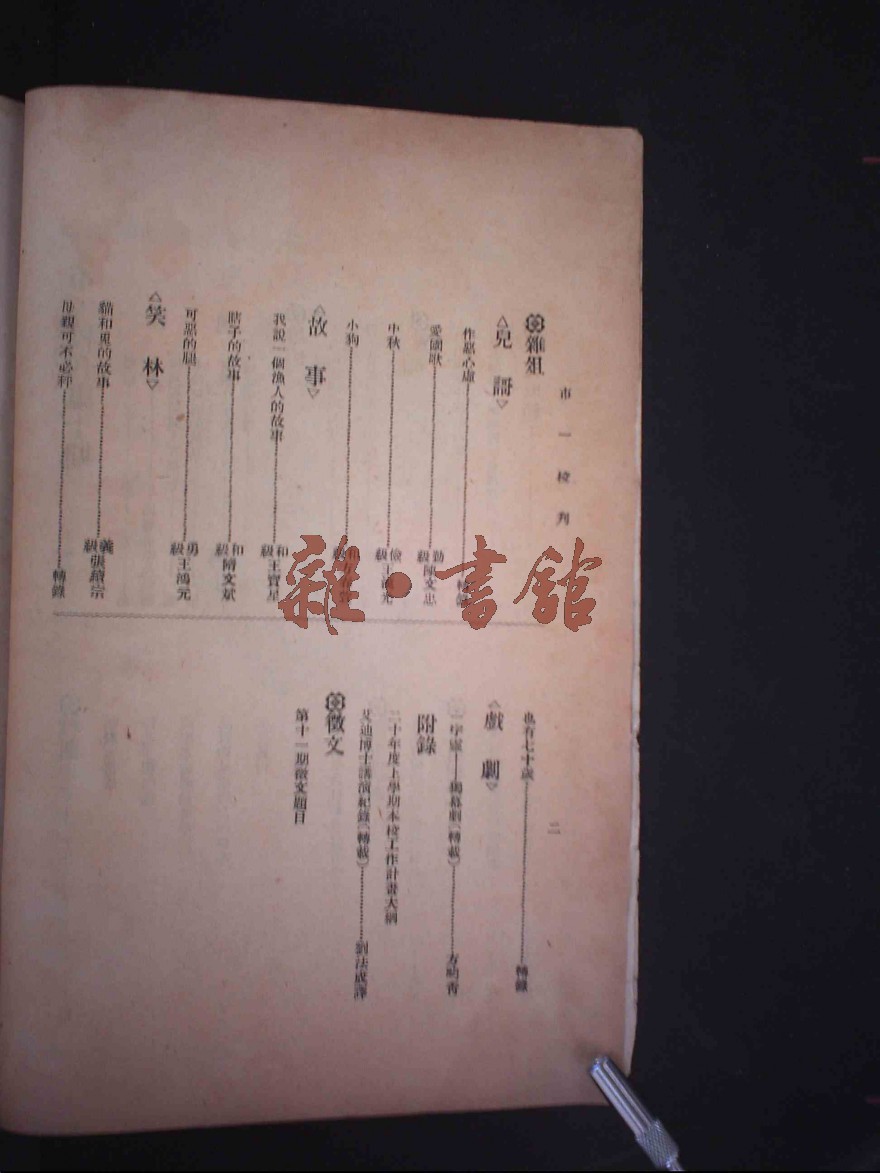 市一校刋
雜俎
△兒謌▽
作惡心虛
愛國歌 勤級陳文忠
中秋 儉級王鴻元
小狗
△故事▽
我說一個漁人的故事 和級王寶星
瞎子的故事 和級隋文斌
可惡的腿 勇級王鴻元
△笑林▽
貓和鬼的故事 義級張續宗
母親可不必秤 轉錄
二
也有七十歲 轉錄
△戲劇▽
一字慮——獨幕劇（轉載） 方明香
附錄
二十年度上學期本校工作計畫大綱
艾迪博士講演紀錄（轉載） 劉法成譯
徵文
第十一期徵文題目
雜·書館